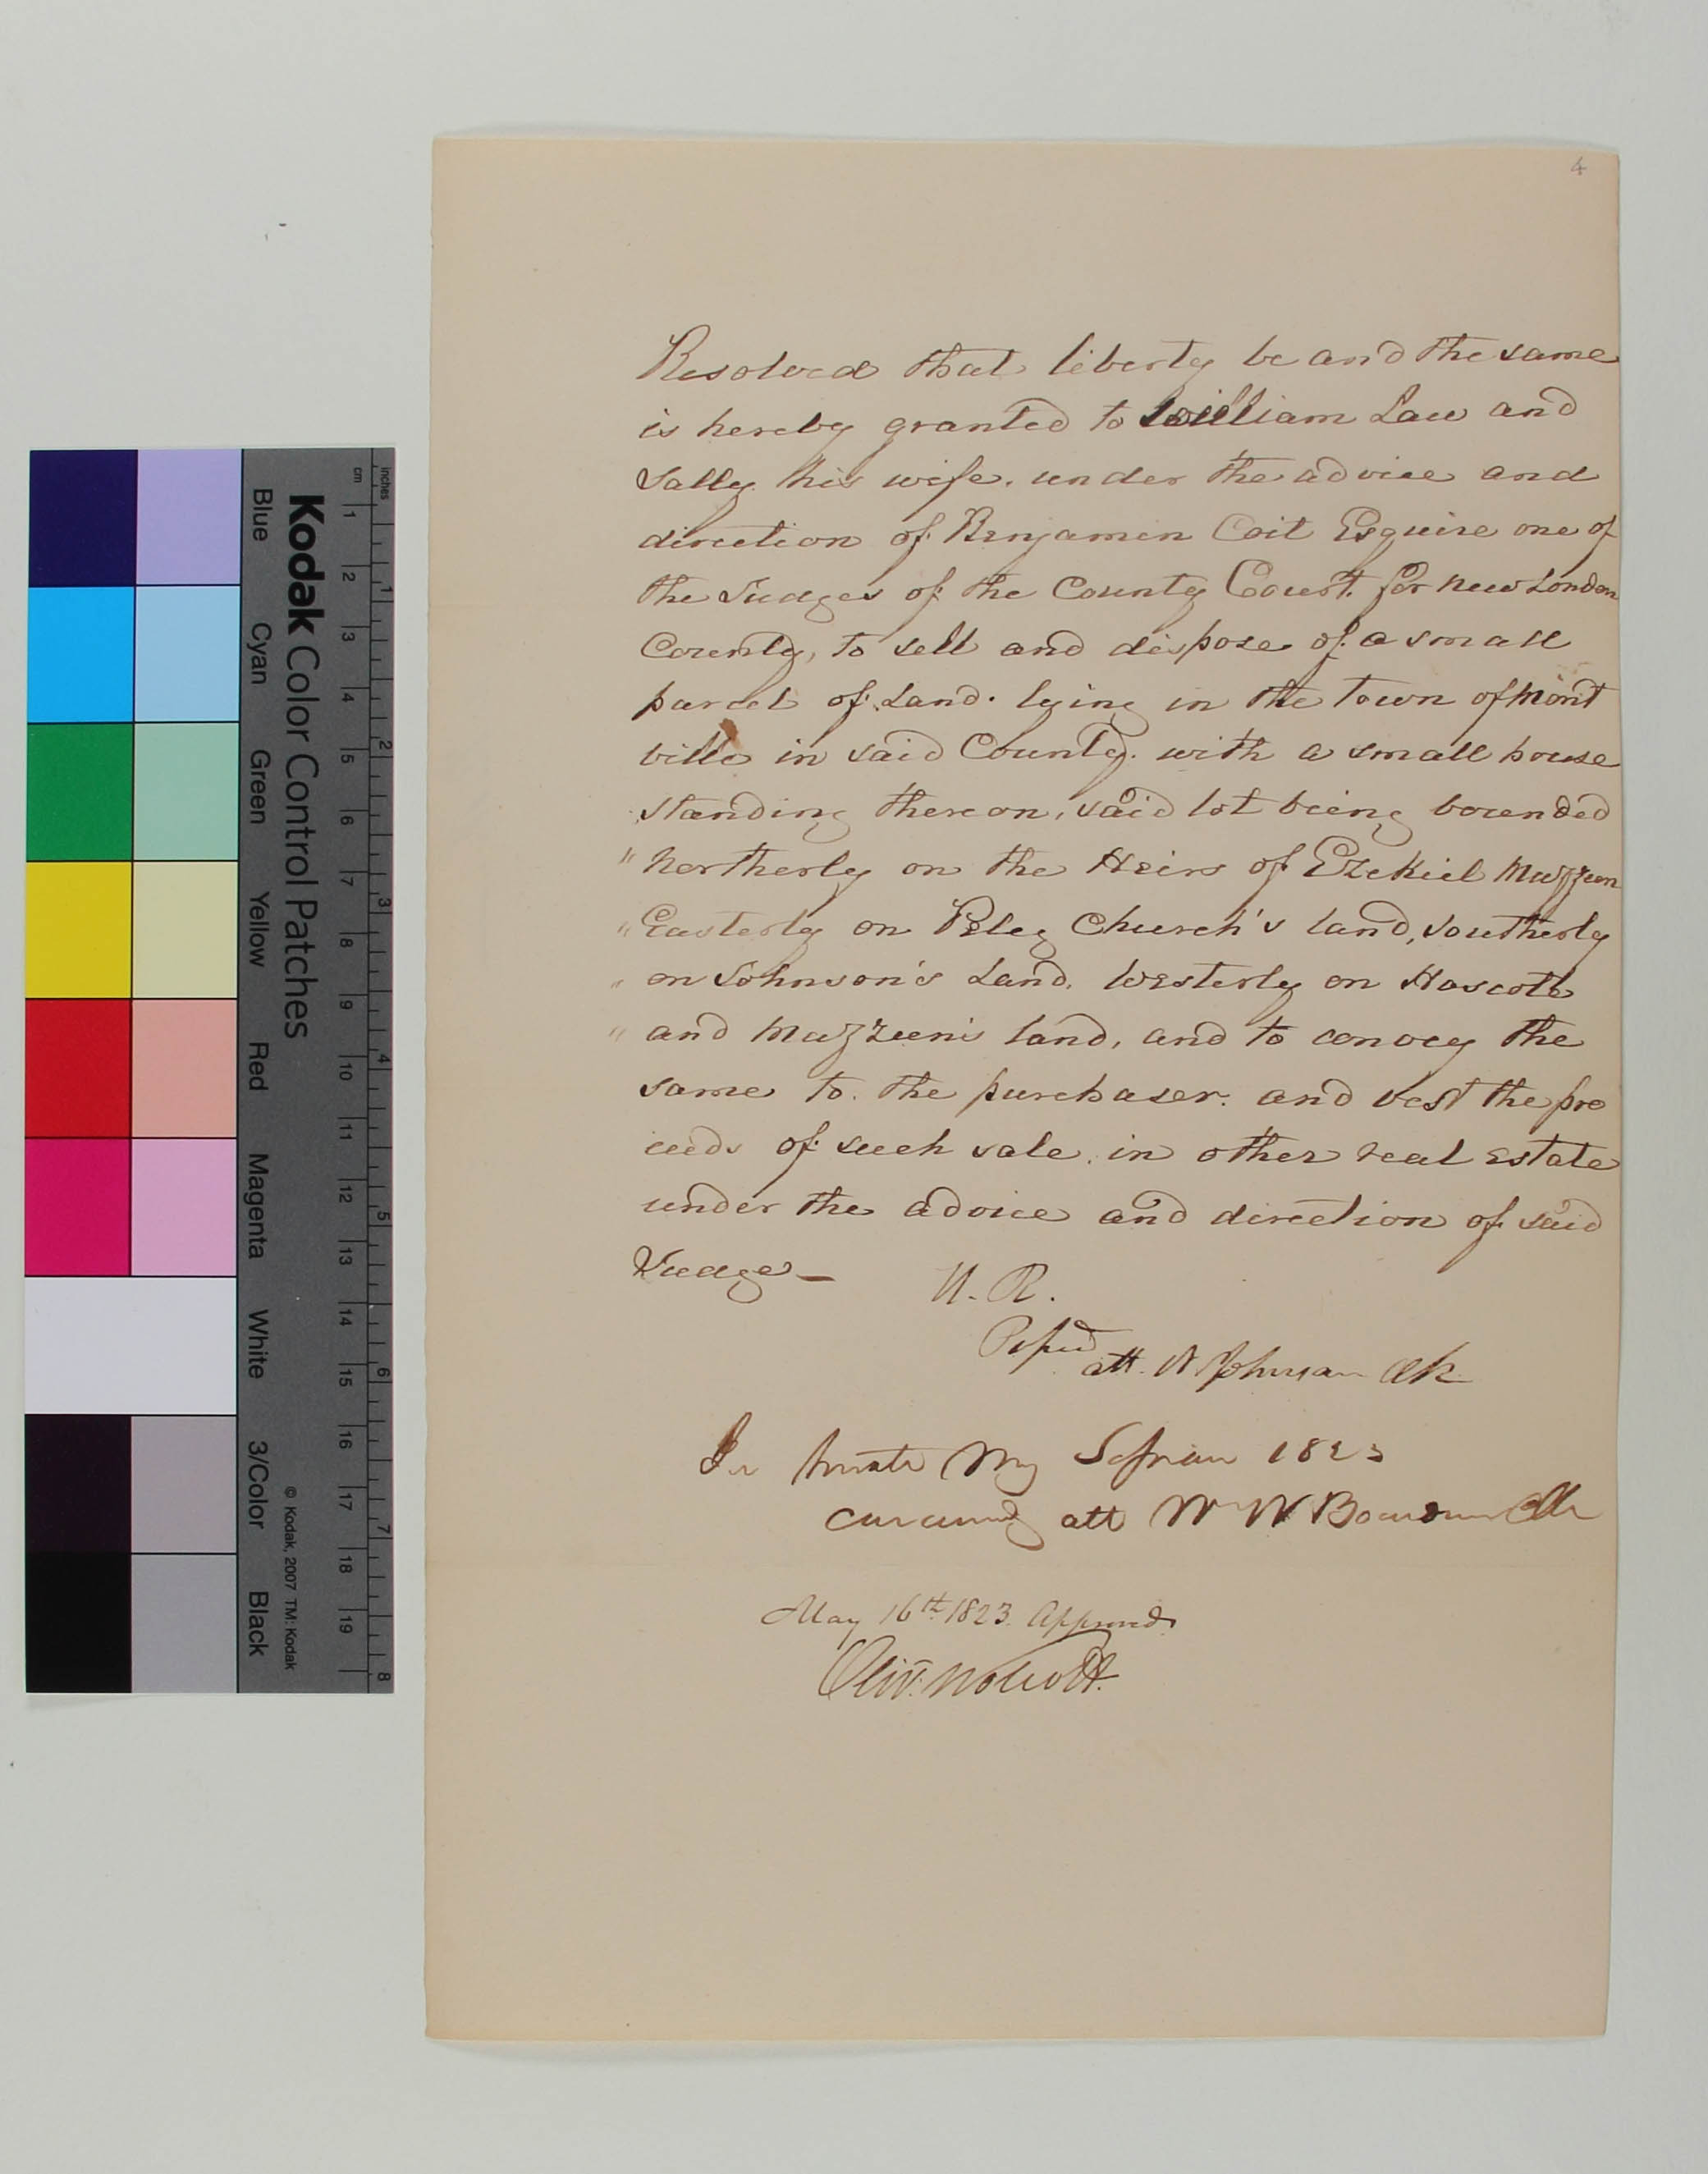 4
Resolved that liberty be and the same
is hereby granted to William Law and
Sally his wife. under the advice and
direction of Benjamin Coit Esquire one of
the Judges of the County Court for New London
County, to sell and dispose of a small
parcel of Land. lying in the Town of Mont
ville in said County. with a small house
standing thereon, said lot being bounded
" Northerly on the Heirs of Ezekiel Mazzeen
" Easterly on Peleg Church's land, southerly
" on Johnson's Land. Westerly on Hascote
" and Mazzeen's land, and to convey the
same to the purchaser. and vest the pro
ceeds of such sale, in other real Estate
under the advice and direction of said
Judge —
H. R.
Passd
att. N Johnson Clk
In Senate May Session 1823
concurring att W W Boardman Clk
May 16th. 1823. Approved.
Oliv. Wolcott.
inches
cm
1 2 3 4 5 6 7 8 9 10 11 12 13 14 15 16 17 18 19
1 2 3 4 5 6 7 8
Kodak Color Control Patches
© Kodak, 2007 TM: Kodak
Blue Cyan Green Yellow Red Magenta White 3/Color Black